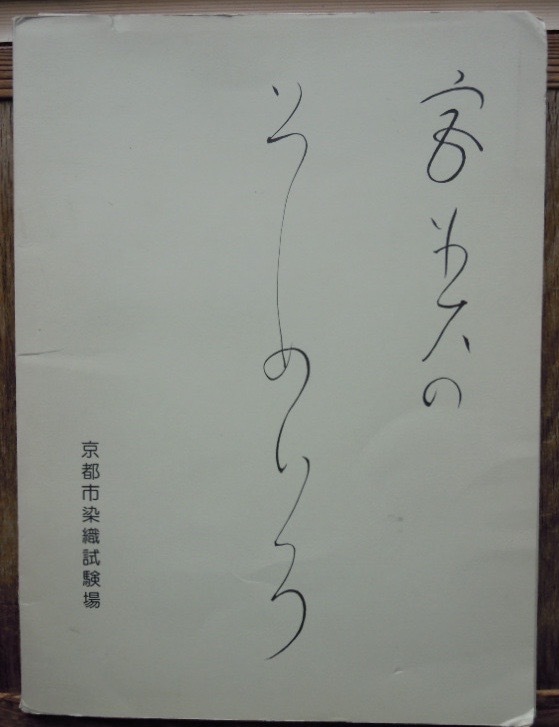 の
そめいろ
京都市染織試験場